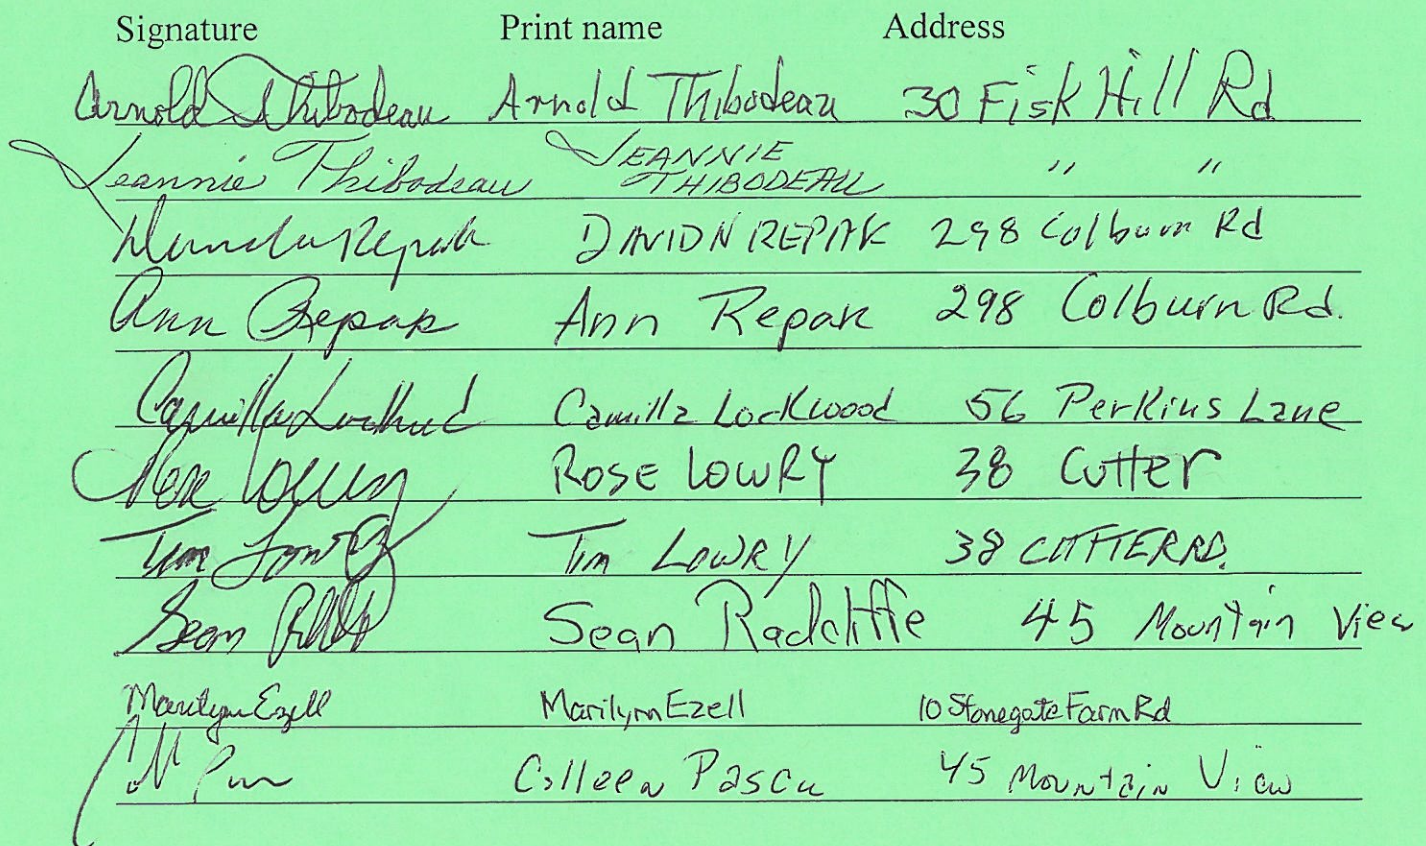 Signature Print name Address
Arnold Thibodeau Arnold Thibodeau 30 Fisk Hill Rd
Jeannie Thibodeau JEANNIE THIBODEAU " "
Repak DAVID N REPAK 298 Colburn Rd
Ann Repak Ann Repak 298 Colburn Rd.
Camilla Lockwood Camilla Lockwood 56 Perkins Lane
Rose Lowry ROSE LOWRY 38 Cutter
Tim Lowry Tim LOWRY 38 CUTTER RD.
Sean Sean Radcliffe 45 Mountain View
Marilyn Ezell Marilyn Ezell 10 Stonegate Farm Rd
Colleen Pascu 45 Mountain View